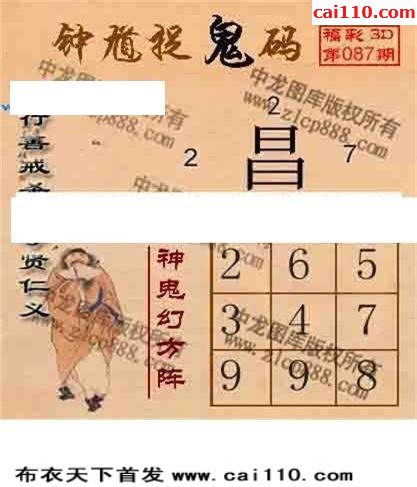 cai110.com
钟馗捉鬼码
福彩3D
第087期
中龙图库版权所有
www.zlcp888.com
2
2 昌 7
行善戒
贤仁义
神鬼幻方阵
2 6 5
3 4 7
9 9 8
中龙图库版权所有
www.zlcp888.com
布衣天下首发 www.cai110.com